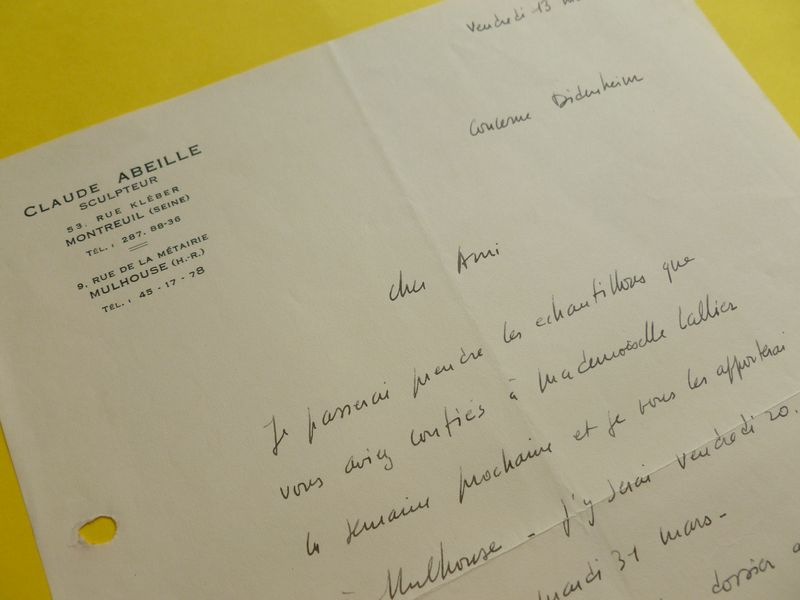 Vendredi 13
Concerne Didenheim
CLAUDE ABEILLE
SCULPTEUR
53, RUE KLÉBER
MONTREUIL (SEINE)
TÉL. : 287. 88-36
9, RUE DE LA MÉTAIRIE
MULHOUSE (H.-R.)
TÉL. : 45 - 17 - 78
cher Ami
Je passerai prendre les echantillons que
vous aviez confiés à Mademoiselle Lallier
la semaine prochaine et je vous les apporterai
à Mulhouse - j'y serai vendredi 20.
mardi 31 mars -
dossier